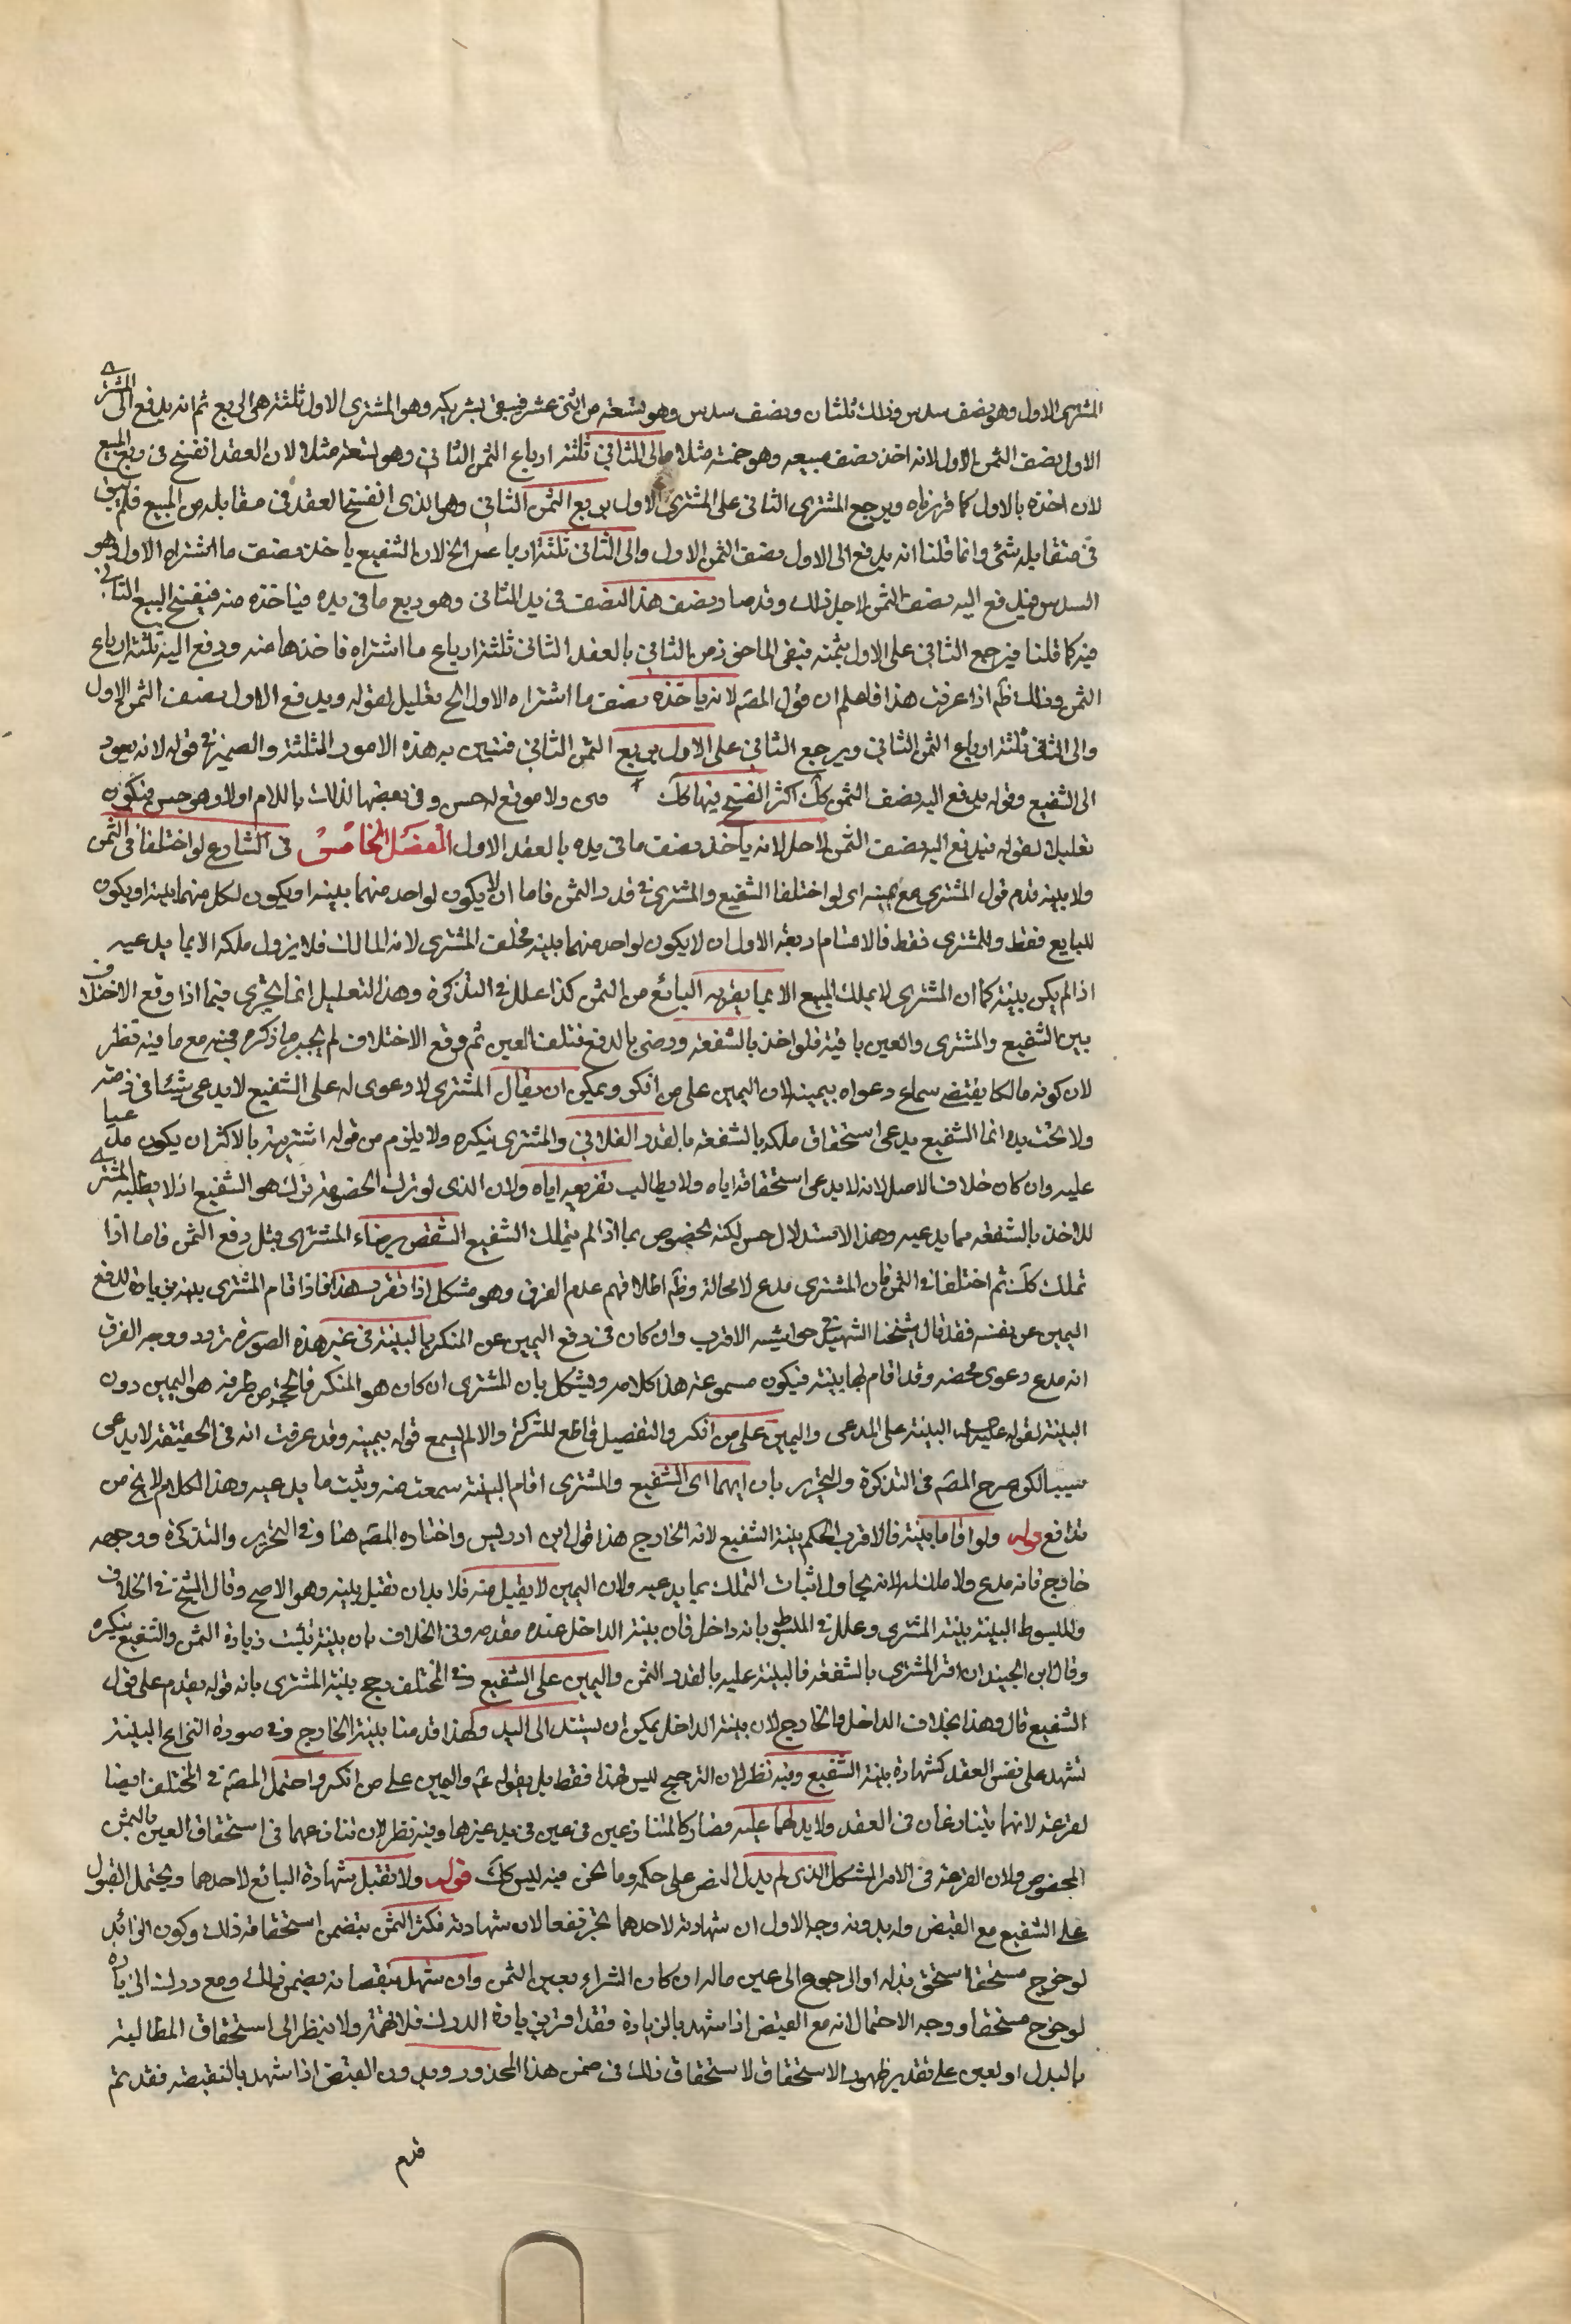 المشتري الاول وهو نصف سدس وذلك ثلثان ونصف سدس وهو تسعة من اثنى عشر فيبقى بشريكه وهو المشترى الاول ثلثة هى الربع ثم انه يدفع الى المشترى
الاول نصف الثمن الاول لانه اخذ نصف مبيعه وهو خمسة مثلا والى الثانى ثلثة ارباع الثمن الثانى وهو تسعة مثلا لان العقد انفسخ فى ربع المبيع
لان اخذه بالاول كما قررناه ويرجع المشترى الثانى على المشترى الاول بربع الثمن الثانى وهو الذى انفسخ العقد فى مقابله من المبيع فلم يبق
فى مقابله شئ وانما قلنا انه يدفع الى الاول نصف الثمن الاول والى الثانى ثلثة ارباعه الخ لان الشفيع ياخذ نصف ما اشتراه الاول وهو
السدس فيدفع اليه نصف الثمن لاجل ذلك وقد صار نصف هذا النصف فى يد الثانى وهو ربع ما فى يده فياخذه منه فينفسخ البيع الثانى
فيه كما قلنا فيرجع الثانى على الاول بثمنه فبقى الماخوذ من الثانى بالعقد الثانى ثلثة ارباع ما اشتراه فاخذها منه ودفع اليه ثلثة ارباع
الثمن وذلك ظ اذا عرفت هذا فاعلم ان قول المصه لانه ياخذه نصف ما اشتراه الاول الخ تعليل لقوله ويدفع الاول نصف الثمن الاول
والى الثانى ثلثة ارباع الثمن الثانى ويرجع الثانى على الاول بربع الثمن الثانى فتبين به هذه الامور الثلثة والضمير فى قوله لانه يعود
الى الشفيع وقوله يدفع اليه نصف الثمن كك اكثر النسخ فيها كك ولا موقع له حسن وفى بعضها لذلك باللام اولا وهو حسن فيكون
تعليلا لقوله فيدفع اليه نصف الثمن لاجل لانه ياخذ نصف ما فى يده بالعقد الاول الفصل الخامس فى التنازع لو اختلفا فى الثمن
ولا بينه قدم قول المشترى مع يمينه اى لو اختلفا الشفيع والمشترى فى قدر الثمن فاما ان لا يكون لواحد منهما بينه او يكون لكل منهما بينة او يكون
للبايع فقط وللمشترى فقط فالاقسام اربعة الاول ان لا يكون لواحد منهما بينه فحلف المشترى لانه المالك فلا يزول ملكه الا بما يدعيه
اذا لم يكن بينة كما ان المشترى لا يملك المبيع الا بما يقر به البائع من الثمن كذا علل فى التذكرة وهذا التعليل انما يجرى فيما اذا وقع الاختلاف
بين الشفيع والمشترى والعين باقية فلو اخذ بالشفعة ورضى بالدفع فتلف العين ثم وقع الاختلاف لم يجر ما ذكره فيه مع ما فيه نظر
لان كونه مالكا يقتضى سماع دعواه بيمينه لان اليمين على من انكر ويمكن ان يقال المشترى لا دعوى له على الشفيع لا يدعى شيئا فى ذمته
ولا تحت يده انما الشفيع يدعى استحقاق ملكه بالشفعة بالقدر الفلانى والمشترى ينكره ولا يلزم من قوله اشتريته بالاكثر ان يكون مدعيا
عليه وان كان خلاف الاصل لانه لا يدعى استحقاقه اياه ولا يطالب بتغريمه اياه ولان الذى لو ترك الخصومة ترك هو الشفيع اذ لا يطلبه المشترى
للاخذ بالشفعة مما يدعيه وهذا الاستدلال حسن لكنه مخصوص بما اذا لم يتملك الشفيع الشقص برضاء المشترى قبل دفع الثمن فاما اذا
تملك كك ثم اختلفا فى الثمن فان المشترى مدع لا محالة وظ اطلاقهم عدم الفرق وهو مشكل اذا تقرر هذا فاذا اقام المشترى بينه بزيادة لدفع
اليمين عن نفسه فقد قال شيخنا الشهيد فى حواشيه الاقرب وان كان فى دفع اليمين عن المنكر بالبينة فى غير هذه الصورة تردد ووجه الفرق
انه مدع دعوى محضه وقد اقام بها بينة فيكون مسموعة هذا كلامه ويشكل بان المشترى ان كان هو المنكر فالحجة من طرفه هو اليمين دون
البينة لقوله عليه السلام البينة على المدعى واليمين على من انكر والتفصيل قاطع للشركة والا لم يسمع قوله بيمينه وقد عرفت انه فى الحقيقة لا يدعى
شيئا لكن صرح المصه فى التذكرة والتحرير بان ايهما اى الشفيع والمشترى اقام البينة سمعت منه ويثبت ما يدعيه وهذا الكلام لا يخ من
تدافع قوله ولو اقاما بينة فالاقرب الحكم ببينة الشفيع لانه الخارج هذا قول ابن ادريس واختاره المصه هنا وفى التحرير والتذكرة ووجهه
خارج فانه مدع ولا ملك له لانه يحاول اثبات التملك بما يدعيه ولان اليمين لا يقبل منه فلا بد ان تقبل بينه وهو الاصح وقال الشيخ فى الخلاف
والمبسوط البينة بينة المشترى وعلل فى المبسوط بانه داخل فان بينة الداخل عنده مقدمه وفى الخلاف بان بينة تثبت زيادة الثمن والشفيع ينكره
وقال ابن الجنيد ان اقر المشترى بالشفعة فالبينة عليه بالقدر الثمن واليمين على الشفيع وفى المختلف رجح بينة المشترى بانه قوله يقدم على قول
الشفيع قال وهذا بخلاف الداخل والخارج لان بينة الداخل يمكن ان يستند الى اليد ولهذا قدمنا بينة الخارج وفى صورة النزاع البينة
تشهد على نفس العقد كشهادة بينة الشفيع وفيه نظر لان الترجيح ليس لهذا فقط بل بقوله عم واليمين على من انكر واحتمل المصه فى المختلف ايضا
لقرعة لانهما يتنازعان فى العقد ولا يد لهما عليه فصارا كالمتنازعين فى عين فى يد غيرهما وفيه نظر لان تنازعهما فى استحقاق العين بالثمن
المخصوص ولان القرعة فى الامر المشكل الذى لم يدل النص على حكمه وما نحن فيه ليس كك قوله ولا تقبل شهادة البائع لاحدهما ويحتمل القبول
على الشفيع مع القبض وله بدونه وجه الاول ان شهادته لاحدهما تجر نفعا لان شهادته فكثر الثمن يتضمن استحقاقه ذلك وكون الزائد
لو خرج مستحقا استحق بدله او الرجوع الى عين ماله ان كان الشراء بعين الثمن وان شهد بنقصانه يضمن ذلك ومع درك الزيادة
لو خرج مستحقا ووجه الاحتمال انه مع القبض اذا شهد بالزيادة فقد اقر بزيادة الدرك فلا تهمة ولا ينظر الى استحقاق المطالبة
بالبدل او لعين على تقدير ظهور الاستحقاق لاستحقاق ذلك فى ضمن هذا المحذور وبدون القبض اذا شهد بالنقيصة فقد يتم